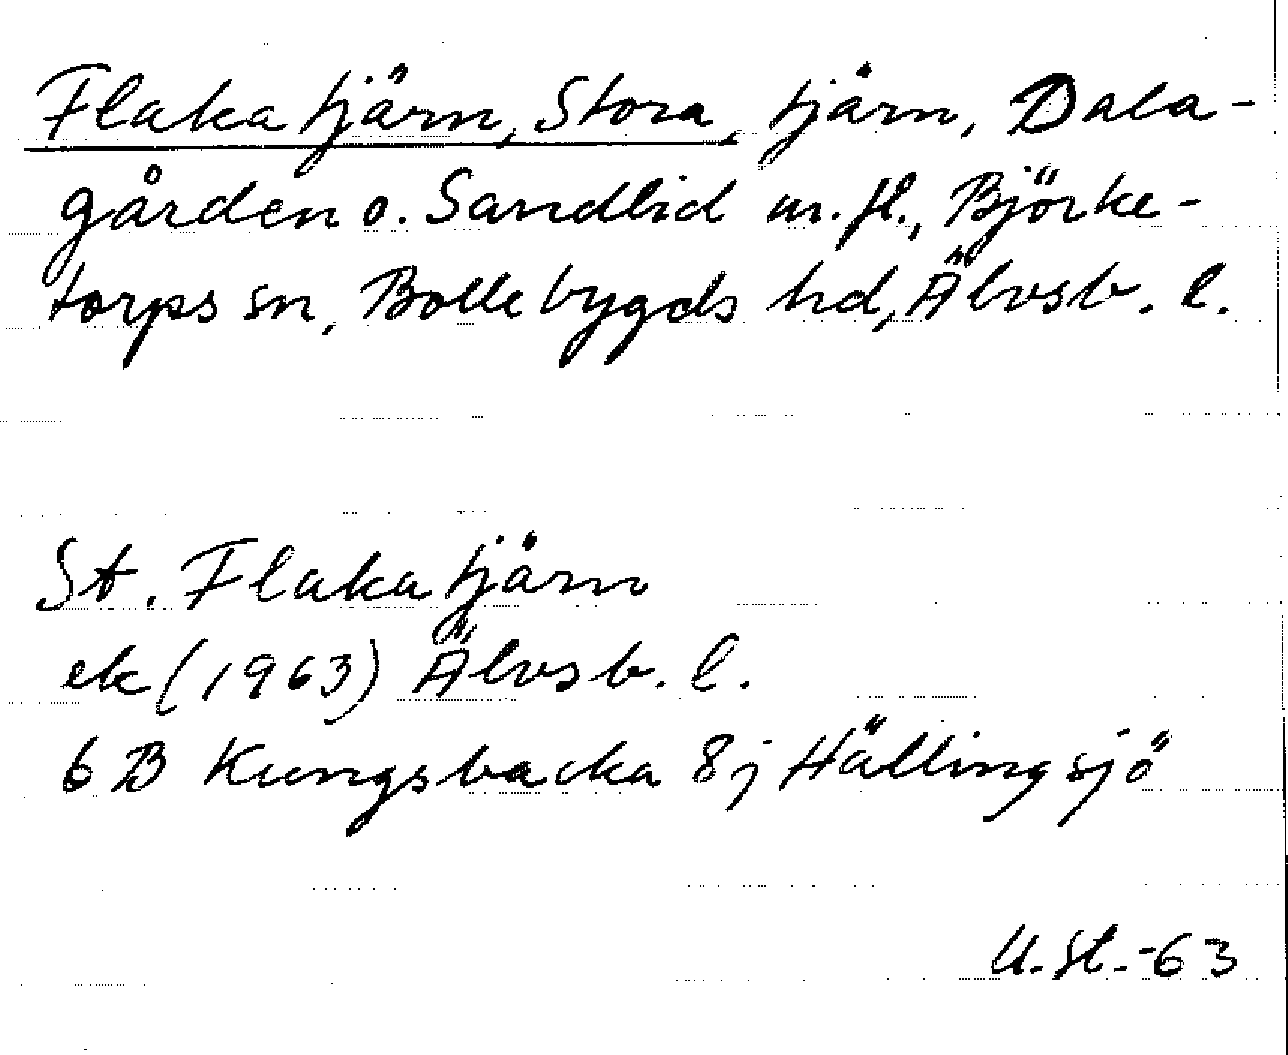 Flakatjärn, Stora, tjärn, Dala-
gården o. Sandlid m. fl., Björke-
torps sn, Bollebygds hd, Älvsb. l.
St. Flakatjärn
ek (1963) Älvsb. l.
6 B Kungsbacka 8j Hällingsjö
U. St. -63